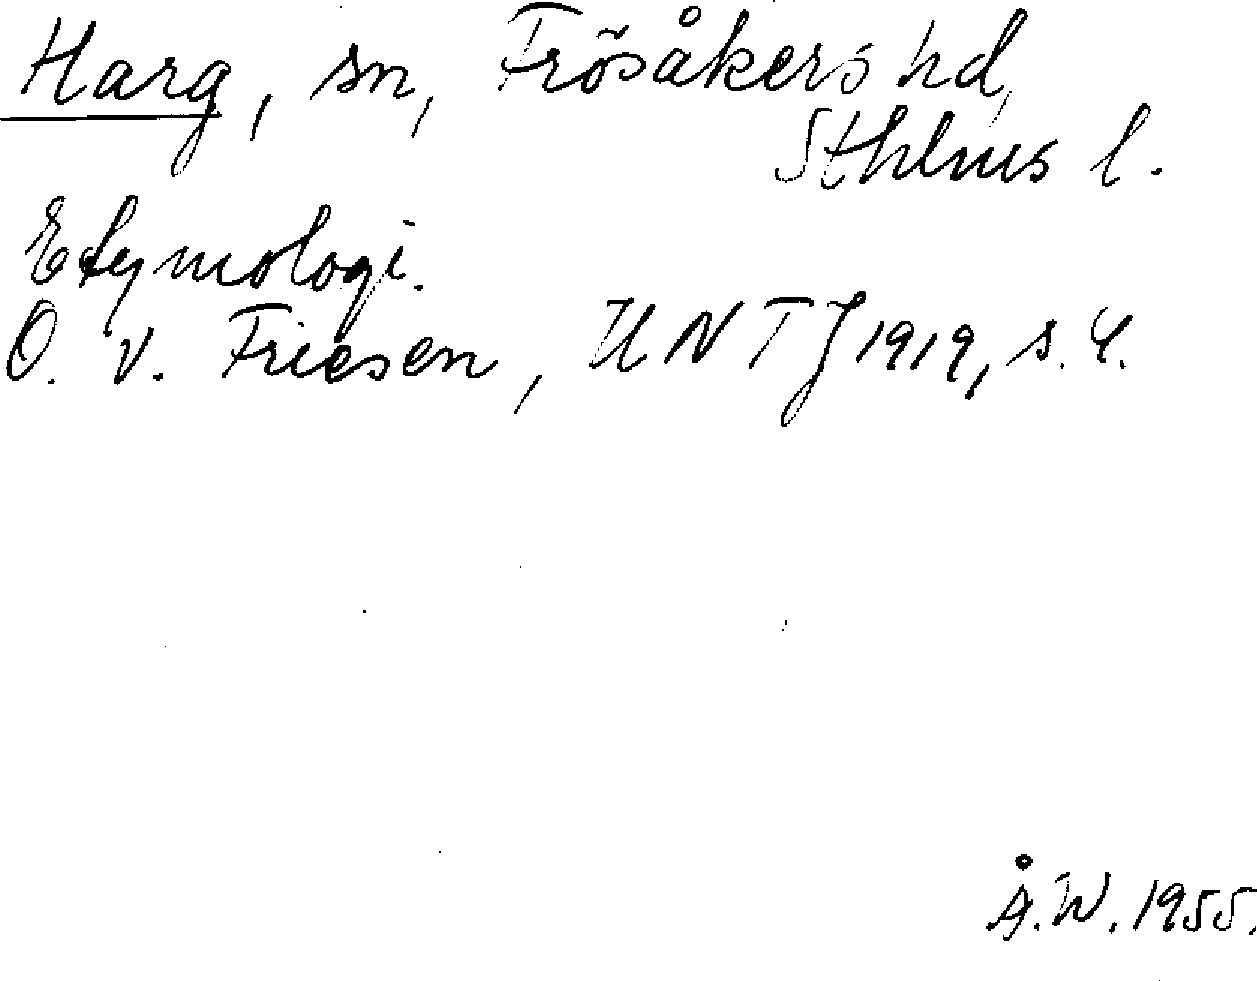 Harg, sn, Frösåkers hd,
Sthlms l.
Etymologi.
O. v. Friesen, UNTJ 1919, s. 4.
Å.W. 1955.